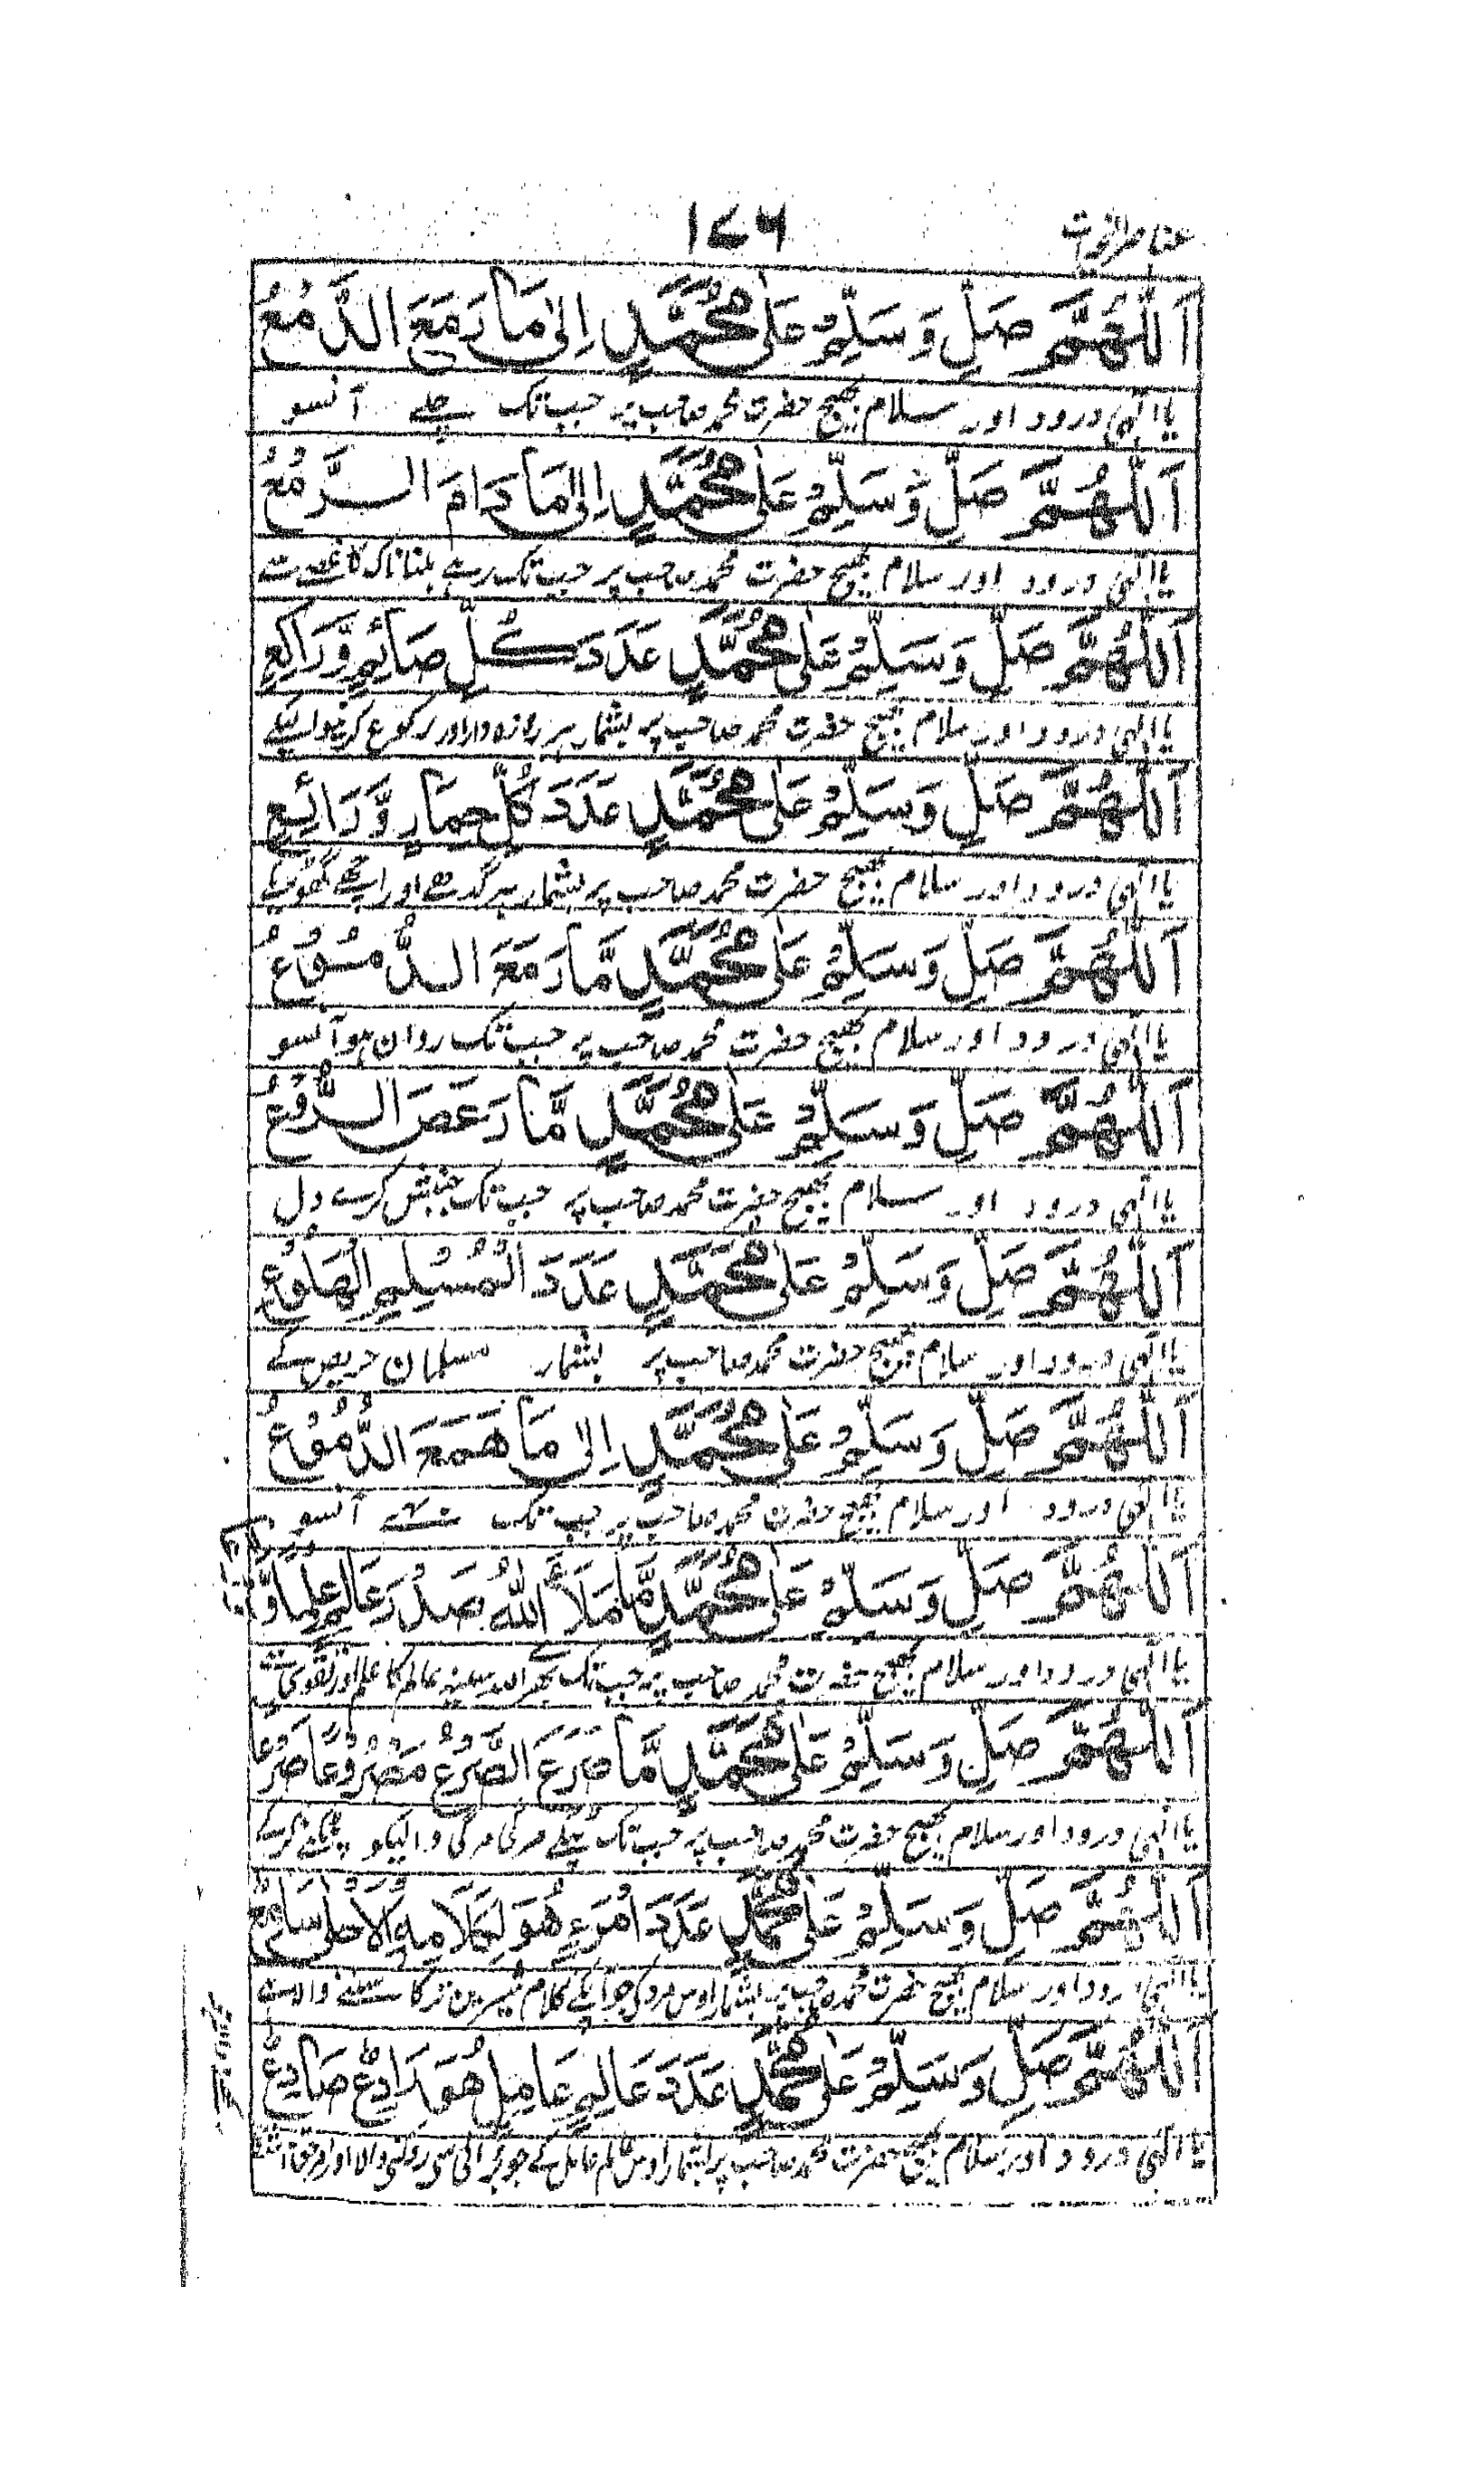 ۱۷۶
اَللّٰهُمَّ صَلِّ وَسَلِّمْ عَلٰى مُحَمَّدٍ اِلٰى مَا دَمَعَ الدَّمْعُ
یا الٰہی درود اور سلام بھیج حضرت محمد صاحب پر جب تک چلے آنسو
اَللّٰهُمَّ صَلِّ وَسَلِّمْ عَلٰى مُحَمَّدٍ اِلٰى مَا دَامَ الرَّمْعُ
یا الٰہی درود اور سلام بھیج حضرت محمد صاحب پر جب تک رہے ہلنا ناک کا غصہ سے
اَللّٰهُمَّ صَلِّ وَسَلِّمْ عَلٰى مُحَمَّدٍ عَدَدَ كُلِّ صَائِمٍ وَّرَاكِعٍ
یا الٰہی درود اور سلام بھیج حضرت محمد صاحب پر بشمار ہر روزہ دار اور رکوع کرنیوالیکے
اَللّٰهُمَّ صَلِّ وَسَلِّمْ عَلٰى مُحَمَّدٍ عَدَدَ كُلِّ حِمَارٍ وَّرَائِعٍ
یا الٰہی درود اور سلام بھیج حضرت محمد صاحب پر بشمار ہر گدھے اور اچھے گھوڑیکے
اَللّٰهُمَّ صَلِّ وَسَلِّمْ عَلٰى مُحَمَّدٍ مَّا دَمَعَ الدُّمُوْعُ
یا الٰہی درود اور سلام بھیج حضرت محمد صاحب پر جب تک روان ہو آنسو
اَللّٰهُمَّ صَلِّ وَسَلِّمْ عَلٰى مُحَمَّدٍ مَّا رَعَصَ الرُّوْعُ
یا الٰہی درود اور سلام بھیج حضرت محمد صاحب پر جب تک جنبش کرے دل
اَللّٰهُمَّ صَلِّ وَسَلِّمْ عَلٰى مُحَمَّدٍ عَدَدَ الْمُسْلِمِ الْهَلُوْعِ
یا الٰہی درود اور سلام بھیج حضرت محمد صاحب پر بشمار مسلمان حریص کے
اَللّٰهُمَّ صَلِّ وَسَلِّمْ عَلٰى مُحَمَّدٍ اِلٰى مَا هَمَعَ الدُّمُوْعُ
یا الٰہی درود اور سلام بھیج حضرت محمد صاحب پر جب تک بہے آنسو
اَللّٰهُمَّ صَلِّ وَسَلِّمْ عَلٰى مُحَمَّدٍ مَّا مَلَاَ اللّٰهُ صَدْرَ عَالِمٍ عِلْمًا وَّ
یا الٰہی درود اور سلام بھیج حضرت محمد صاحب پر جب تک بھرے اللہ سینہ عالم کا علم اور تقویٰ سے
اَللّٰهُمَّ صَلِّ وَسَلِّمْ عَلٰى مُحَمَّدٍ مَّا صَرَعَ الصَّرْعُ مَصْرُوْعًا صَرْعًا
یا الٰہی درود اور سلام بھیج حضرت محمد صاحب پر جب تک مرگی والیکو
اَللّٰهُمَّ صَلِّ وَسَلِّمْ عَلٰى مُحَمَّدٍ عَدَدَ امْرَءٍ هُوَ لِكَلَامِهِ الْاَحْلٰى سَامِعٌ
یا الٰہی درود اور سلام بھیج حضرت محمد صاحب پر بشمار اوس مرد کی جو آپکے کلام شیرین تر کا سننے والا ہے
اَللّٰهُمَّ صَلِّ وَسَلِّمْ عَلٰى مُحَمَّدٍ عَدَدَ عَالِمٍ عَامِلٍ هُوَ رَادِعٌ صَادِعٌ
یا الٰہی درود اور سلام بھیج حضرت محمد صاحب پر بشمار اوس عالم عامل کے جو برائی سی روکنے والا اور